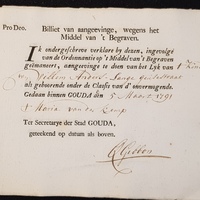 Pro Deo. Billiet van aangeevinge, wegens het
Middel van 't Begraven.
IK ondergeschreve verklare by dezen, ingevolge
van de Ordonnantie op 't Middel van 't Begraven
geëmaneert, aangeevinge te doen van het Lyk van
Willem
als gehoorende onder de Classis van d' onvermogende.
Gedaan binnen GOUDA den 5 Maart 1791
Maria van der
Ter Secretarye der Stad GOUDA,
geteekend op datum als boven.